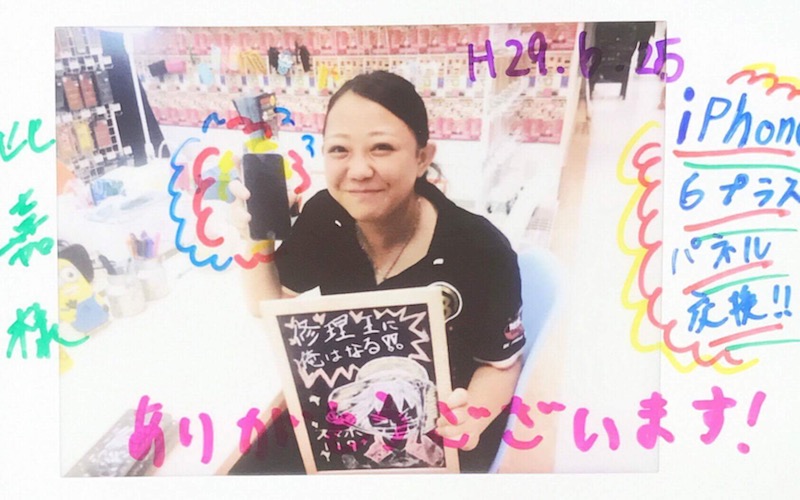 H29.6.25
比嘉様
iPhone
6プラス
パネル
交換!!
修理王に
俺はなる!!
スマホ
ありがとうございます!